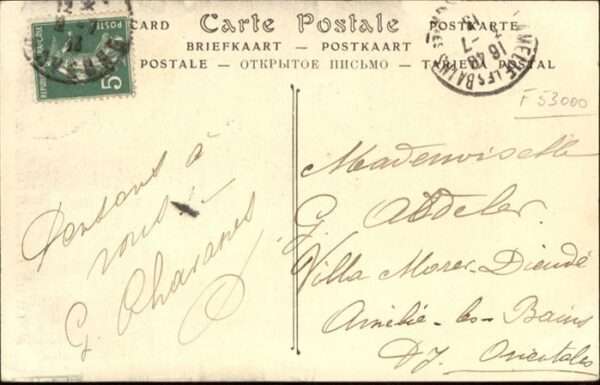 CARD Carte Postale POSTKARTE
BRIEFKAART — POSTKAART
POSTALE — ОТКРЫТОЕ ПИСЬМО — TARJETA POSTAL
POSTES
5
AMELIE-LES-BAINS
16 40
7
F 53000
Pensons à
vous!
G.
Mademoiselle
G.
Villa Morer-Dieudé
Amélie-les-Bains
Py. Orientales